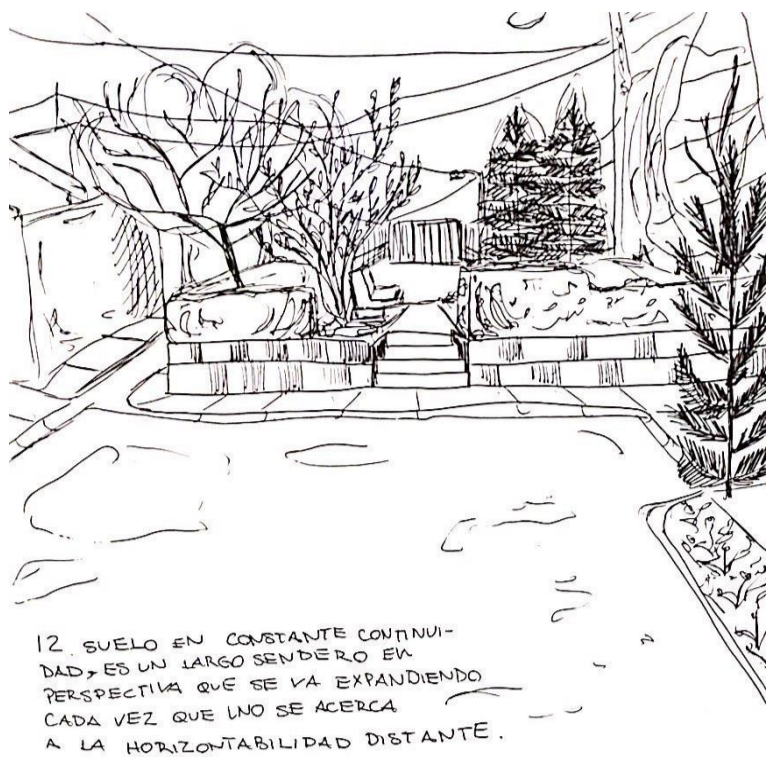 12. SUELO EN CONSTANTE CONTINUI-
DAD, ES UN LARGO SENDERO EN
PERSPECTIVA QUE SE VA EXPANDIENDO
CADA VEZ QUE UNO SE ACERCA
A LA HORIZONTABILIDAD DISTANTE.